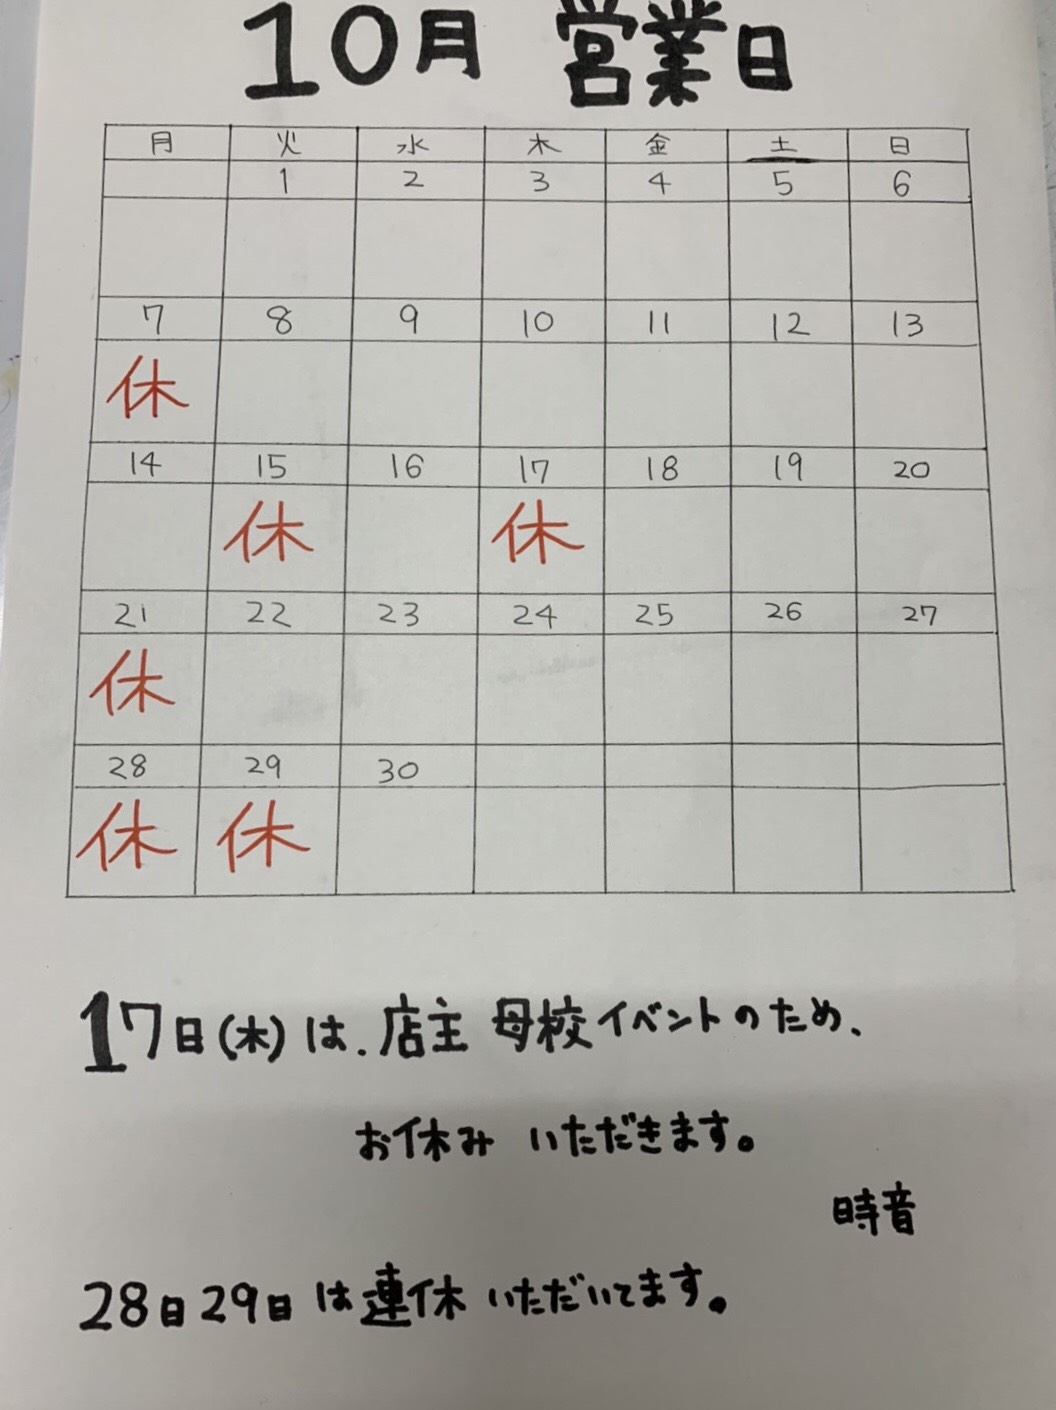 10月 営業日
月 火 水 木 金 土 日
1 2 3 4 5 6
7 8 9 10 11 12 13
休
14 15 16 17 18 19 20
休 休
21 22 23 24 25 26 27
休
28 29 30
休 休
17日(木)は、店主 母校イベントのため、
お休み いただきます。
時音
28日29日は連休いただいてます。